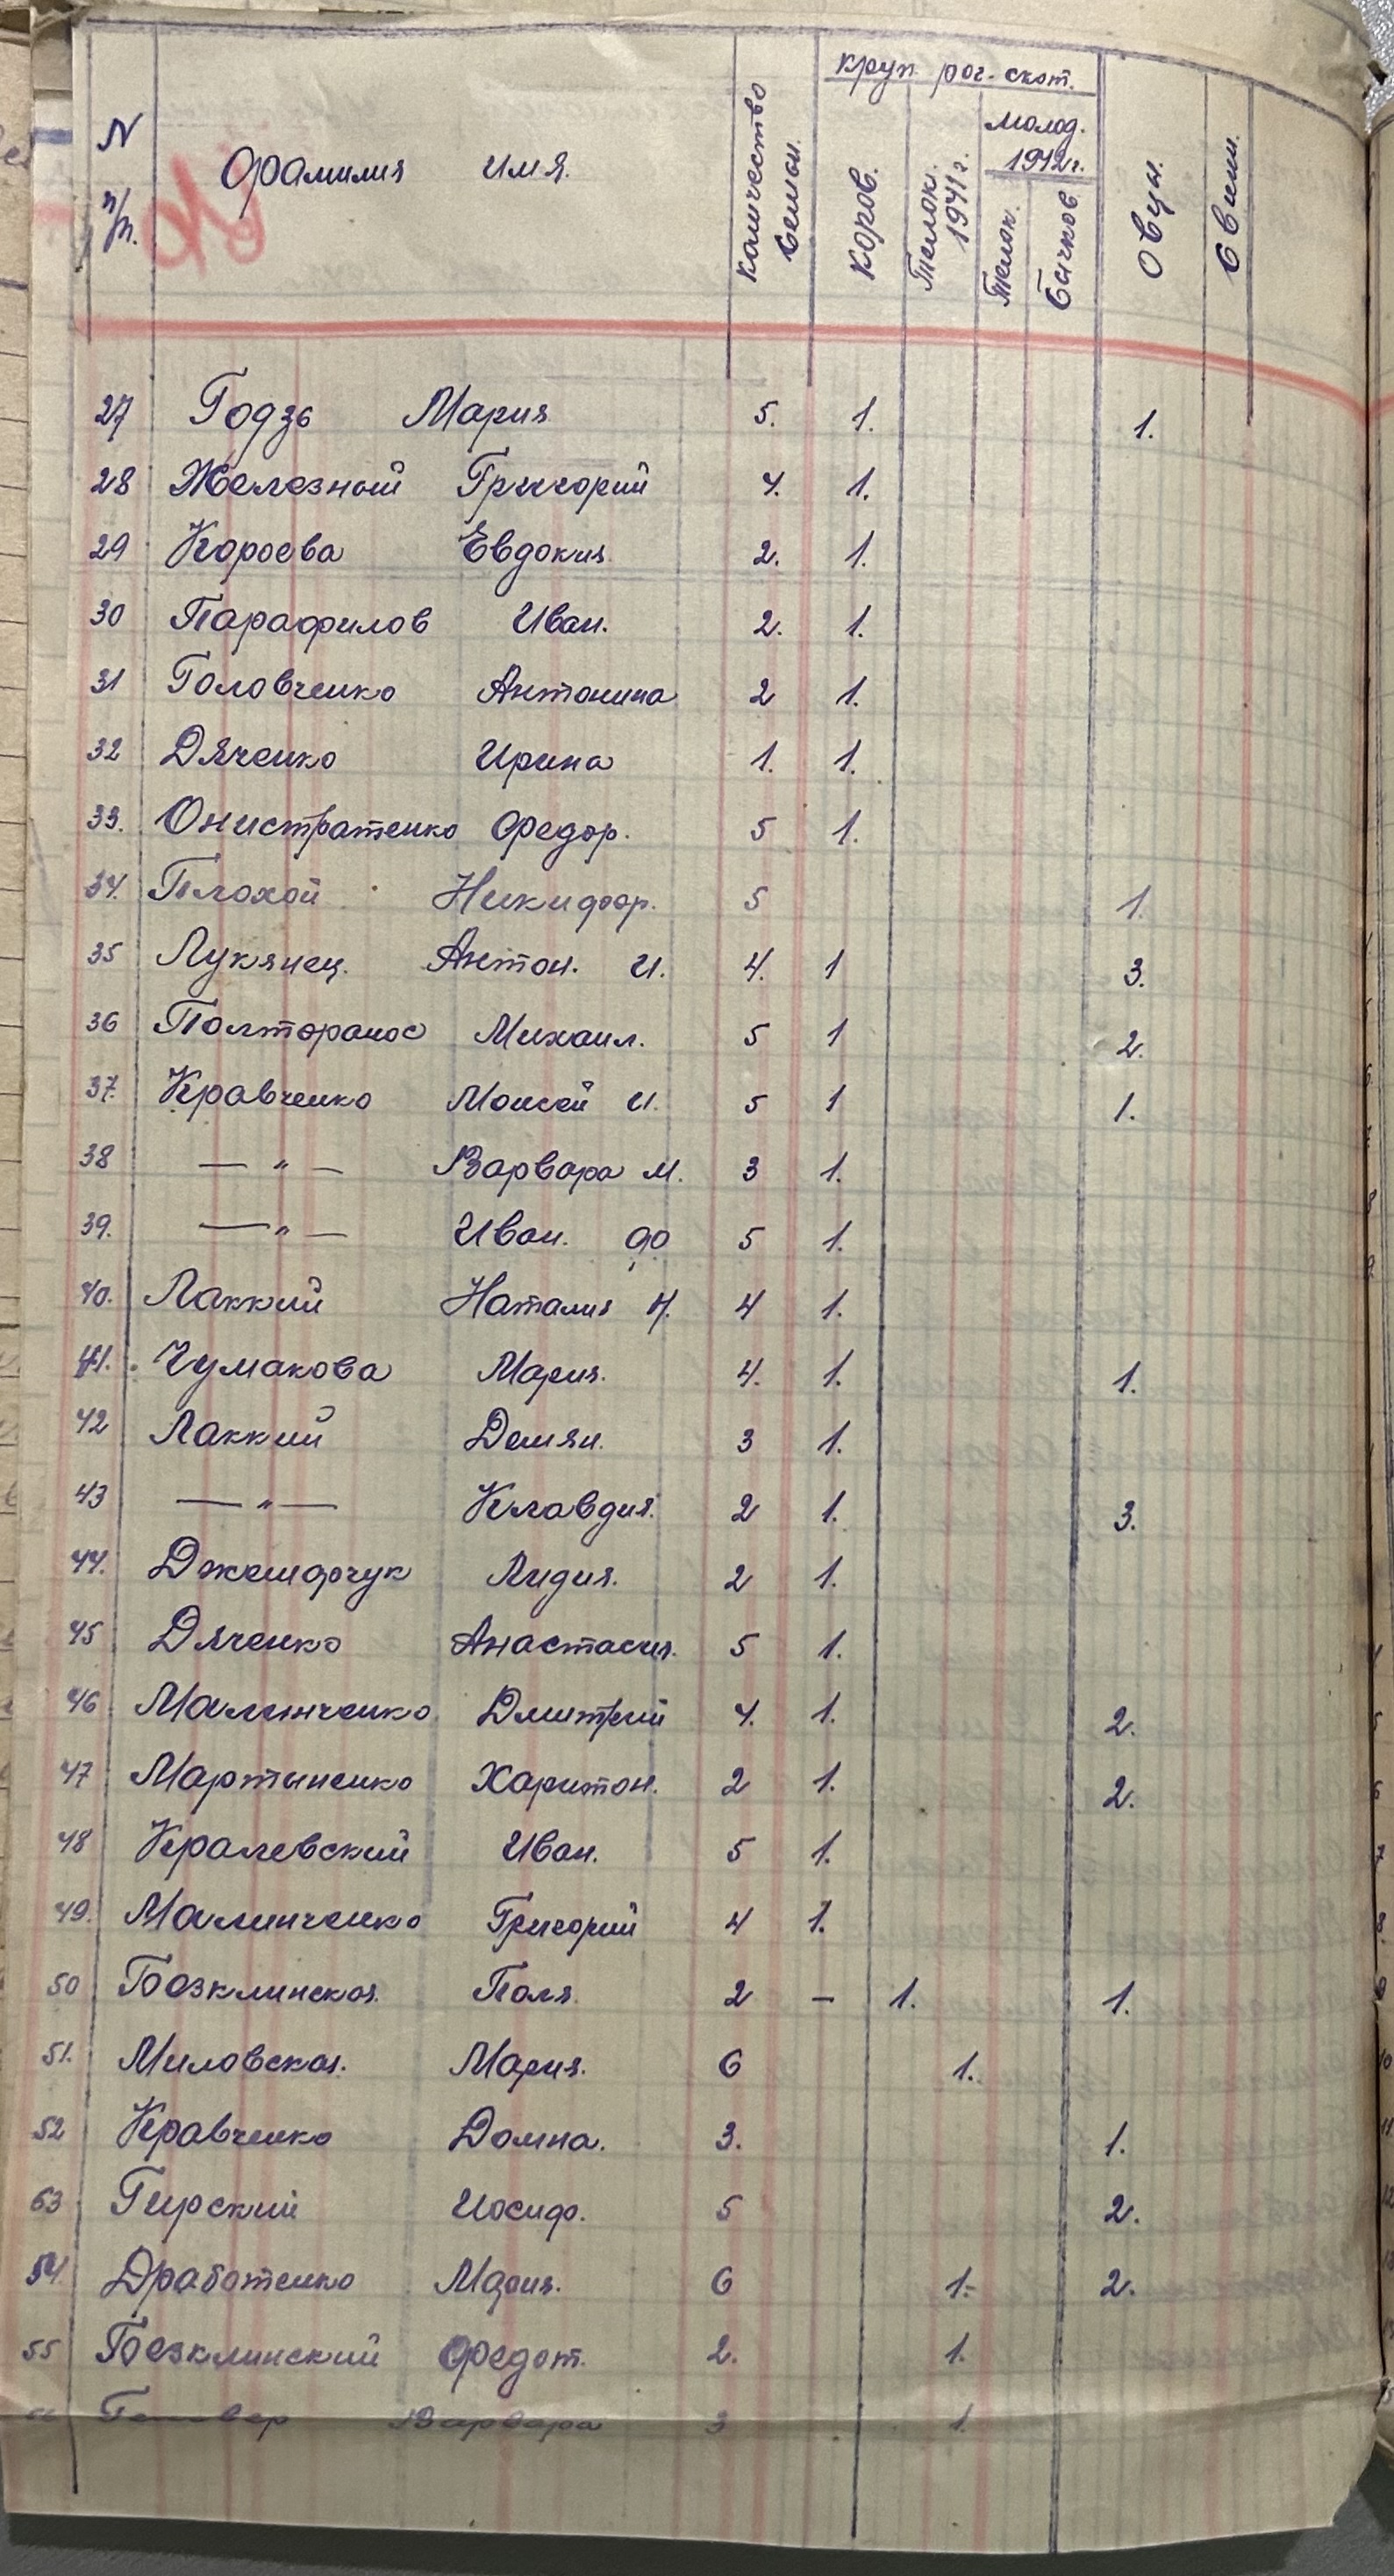 круп. рог. скот.
N п/п. Фамилия имя. количество семьи. коров. Телок. 1941 г. молод. 1942 г. Телок. бычков Овцы. Свини.
27 Годзь Мария 5. 1. 1.
28 Железный Григорий 4. 1.
29 Короева Евдокия 2. 1.
30 Парафилов Иван. 2. 1.
31 Головченко Антонина 2 1.
32 Дяченко Ирина 1. 1.
33. Онистратенко Федор. 5 1.
34. Плохой Никифор. 5 1.
35 Лукянец. Антон. И. 4. 1 3.
36 Полторанос Михаил. 5 1 2.
37. Кравченко Моисей И. 5 1 1.
38 — " — Варвара М. 3 1.
39. — " — Иван. Ф 5 1.
40. Лаккий Наталия Н. 4 1.
41. Чумакова Мария. 4. 1. 1.
42 Лаккий Демян. 3 1.
43 — " — Клавдия. 2 1. 3.
44. Лидия. 2 1.
45 Дяченко Анастасия. 5 1.
46 Малинченко Дмитрий 4. 1. 2.
47 Мартыненко Харитон. 2 1. 2.
48 Кралевский Иван. 5 1.
49. Малинченко Григорий 4 1.
50 Безклинская. Поля 2 — 1. 1.
51. Миловская. Мария. 6 1.
52 Кравченко Домна. 3. 1.
53 Гирский Иосиф. 5 2.
54. Дработенко Мария. 6 1. 2.
55 Безклинский Федот. 2. 1.
Варвара 3 1.